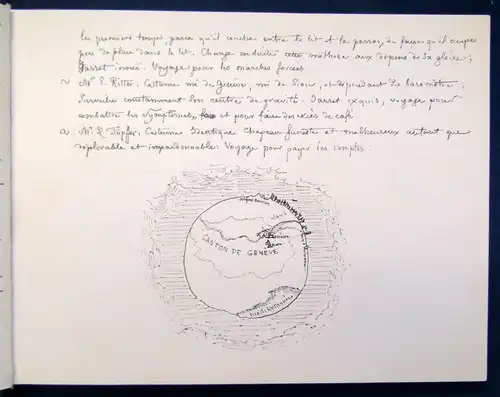 les premiers temps, parce qu'il couche entre le lit et la paroi, de façon qu'il occupe
peu de place dans le lit. Change ensuite cette méthode aux dépens de sa glère;
Jarret inouï. Voyage pour les marches forcées
~ Mr E. Ritter, Costume mi de Genève, mi de Sion, et dépendant du baromètre;
Surveille constamment son centre de gravité. Jarret exquis, voyage pour
combattre les symptomes, et pour faire des excès de café
~ Mr R. Töpffer, Costume Identique Chapeau funeste et malheureux autant que
déplorable et impardonnable. Voyage pour payer les comptes.
CANTON DE GENÈVE
Méditerranée